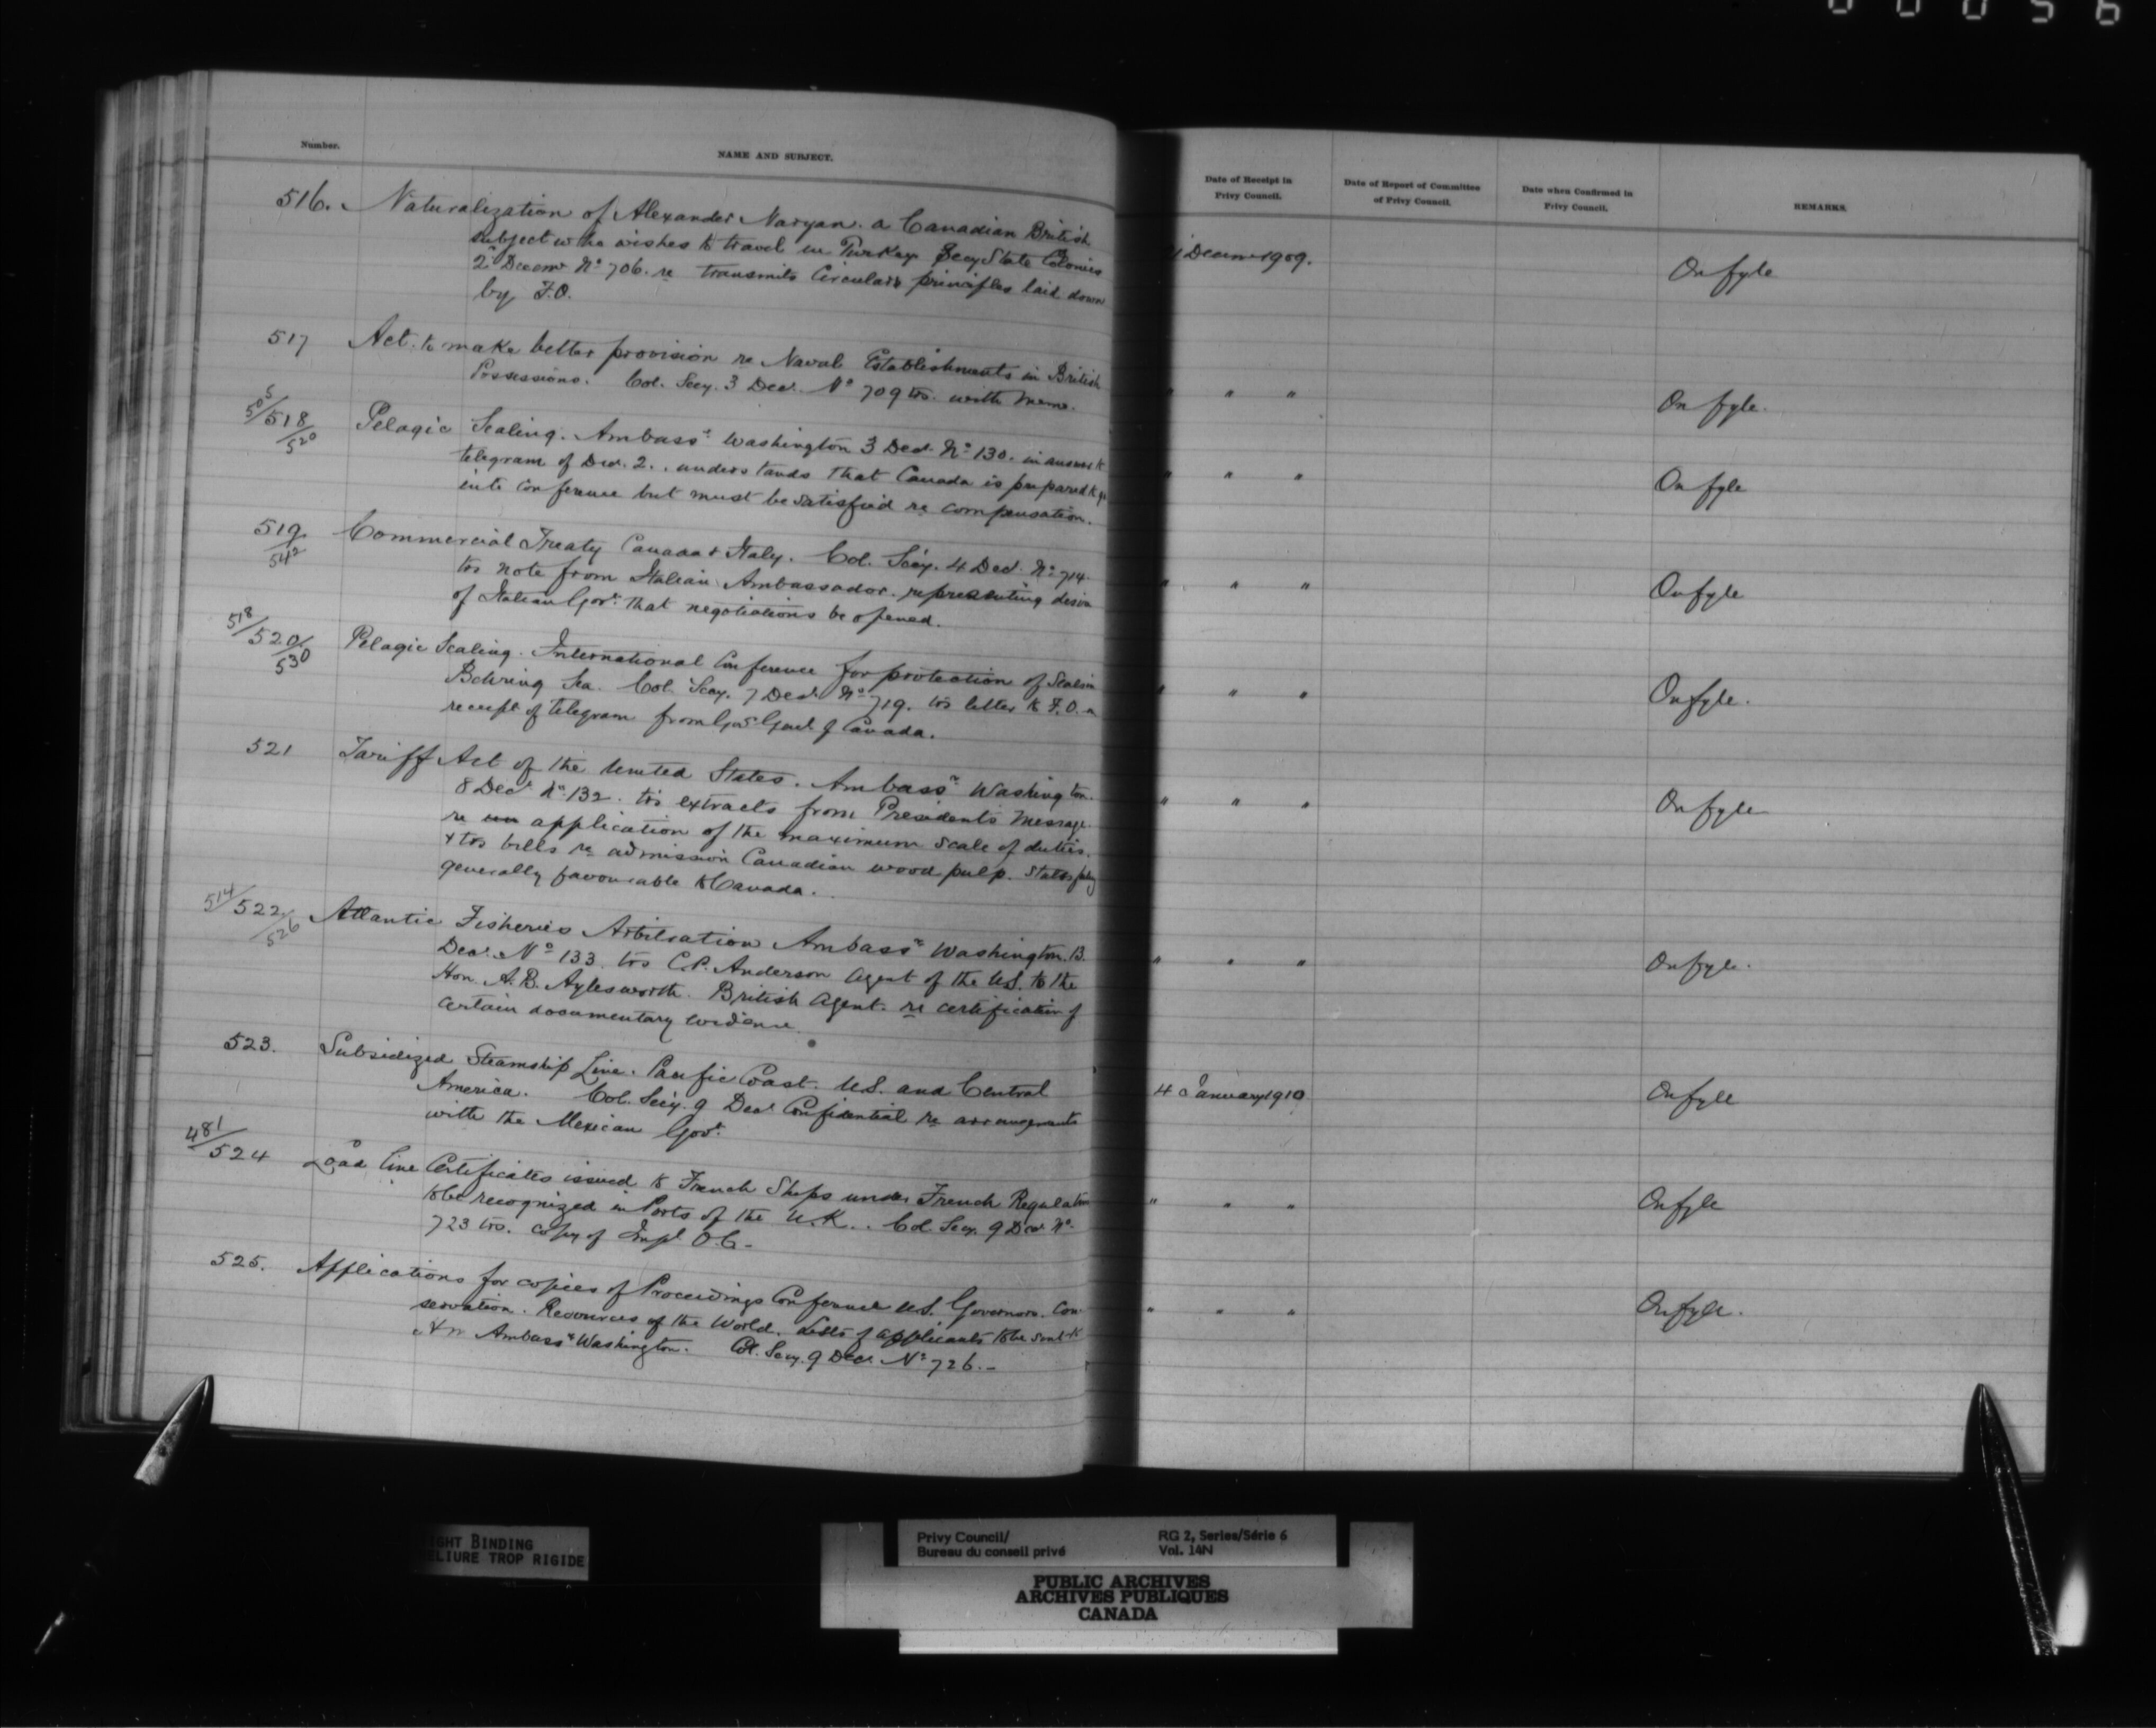 00056
Number.
NAME AND SUBJECT.
Date of Receipt in
Privy Council.
Date of Report of Committee
of Privy Council.
Date when Confirmed in
Privy Council.
REMARKS.
516. Naturalization of Alexander Naryan. a Canadian British
subject who wishes to travel in Turkey Secy State Colonies
2 Decemr No 706. re transmits Circulars principles laid down
by F.O.
Decemr 1909.
On fyle
517 Act. to make better provision re Naval Establishments in British
Possessions. Col. Secy. 3 Decr. No 709 trs. with Memo.
" " "
On fyle.
505/518/520 Pelagic Sealing. Ambassr Washington 3 Decr. No 130. in answer to
telegram of Decr. 2.. understands that Canada is prepared to go
into conference but must be satisfied re compensation.
" " "
On fyle
519/542 Commercial Treaty Canada & Italy. Col. Secy. 4 Decr. No 714.
trs note from Italian Ambassador. representing desire
of Italian Govt. that negotiations be opened.
" " "
On fyle
518/520/530 Pelagic Sealing. International Conference for protection of Seals in
Behring Sea. Col. Secy. 7 Decr. No 719. trs letter to F.O. on
receipt of telegram from Govr Genl of Canada.
" " "
On fyle.
521 Tariff Act of the United States. Ambassr Washington.
8 Decr No. 132. trs extracts from Presidents Message.
re application of the maximum scale of duties.
& trs bills re admission Canadian wood pulp. States
generally favourable to Canada.
" " "
On fyle
514/522/526 Atlantic Fisheries Arbitration Ambassr Washington. 13.
Decr. No 133. trs C.P. Anderson Agent of the U.S. to the
Hon. A.B. Aylesworth. British Agent. re certification of
certain documentary evidence.
" " "
On fyle.
523. Subsidized Steamship Line. Pacific Coast. U.S. and Central
America. Col. Secy. 9 Decr Confidential re arrangements
with the Mexican Govt.
4 January 1910
On fyle
481/524 Load line Certificates issued to French Ships under French Regulations
to be recognized in Ports of the U.K.. Col. Secy. 9 Decr No.
723 trs. copy of Impl O.C.-
" " "
On fyle
525. Applications for copies of Proceedings Conference U.S. Governors. Con-
servation. Resources of the World. Lists of applicants to be sent to
Ambassr Washington. Col. Secy. 9 Decr. No 726.-
" " "
On fyle.
IGHT BINDING
ELIURE TROP RIGIDE
Privy Council/
Bureau du conseil privé
RG 2, Series/Série 6
Vol. 14N
PUBLIC ARCHIVES
ARCHIVES PUBLIQUES
CANADA